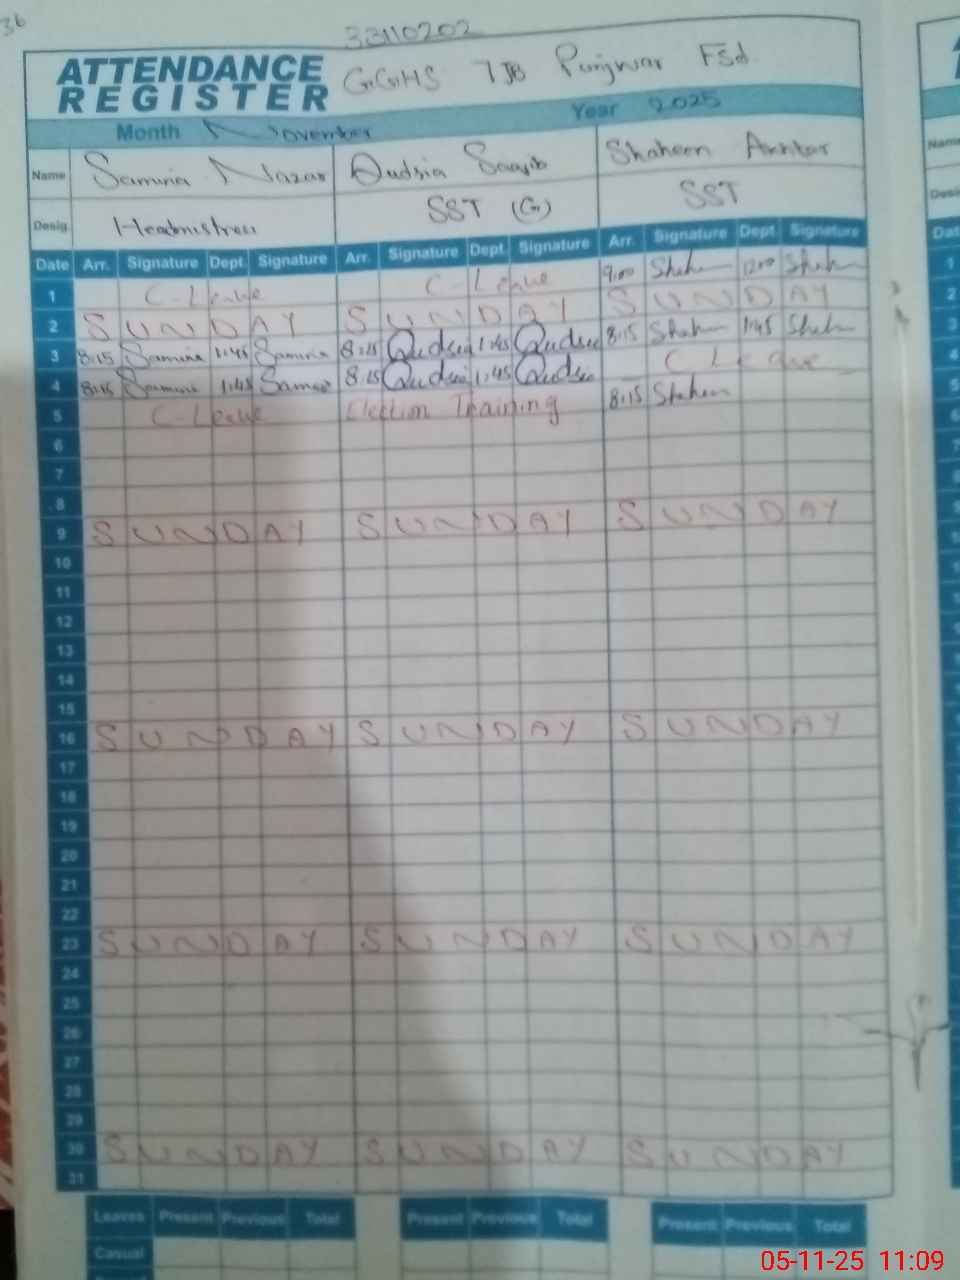 36
33110202
ATTENDANCE REGISTER GGHS 7JB Punjwar Fsd
Month November Year 2025
Name Samina Nazar Qudsia Saqib Shaheen Akhtar
Desig. Headmistress SST (G) SST
Date Arr. Signature Dept. Signature Arr. Signature Dept. Signature Arr. Signature Dept. Signature
1 C-Leave C-Leave 9:00 Shaheen 12:00 Shaheen
2 SUNDAY SUNDAY SUNDAY
3 8:15 Samina 1:45 Samina 8:15 Qudsia 1:45 Qudsia 8:15 Shaheen 1:45 Shaheen
4 8:15 Samina 1:45 Samina 8:15 Qudsia 1:45 Qudsia C-Leave
5 C-Leave Election Training 8:15 Shaheen
6
7
8
9 SUNDAY SUNDAY SUNDAY
10
11
12
13
14
15
16 SUNDAY SUNDAY SUNDAY
17
18
19
20
21
22
23 SUNDAY SUNDAY SUNDAY
24
25
26
27
28
29
30 SUNDAY SUNDAY SUNDAY
31
Leaves Present Previous Total Present Previous Total Present Previous Total
Casual
05-11-25 11:09